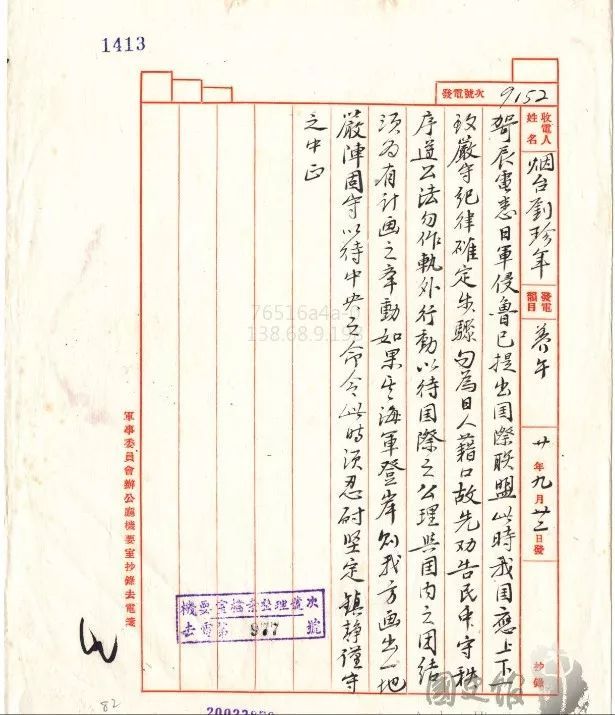 1413
發電號次 9152
收電人姓名 烟台劉珍年 發電韻目 養午 廿年九月廿二日發 抄錄
哿辰電悉日軍侵魯已提出国際聯盟此時我国應上下一
致嚴守紀律確定步驟勿為日人藉口故先劝告民衆守秩
序遵公法勿作軌外行動以待国際之公理與国内之团结
須為有計画之牽動如果其海軍登岸則我方画出一地
嚴陣固守以待中央之命令此時須忍耐坚定鎮静謹守
之中正
軍事委員會辦公廳機要室抄錄去電箋
機要室檔案整理號次
去電第 977 號
82
76516a4a-
138.68.9.19